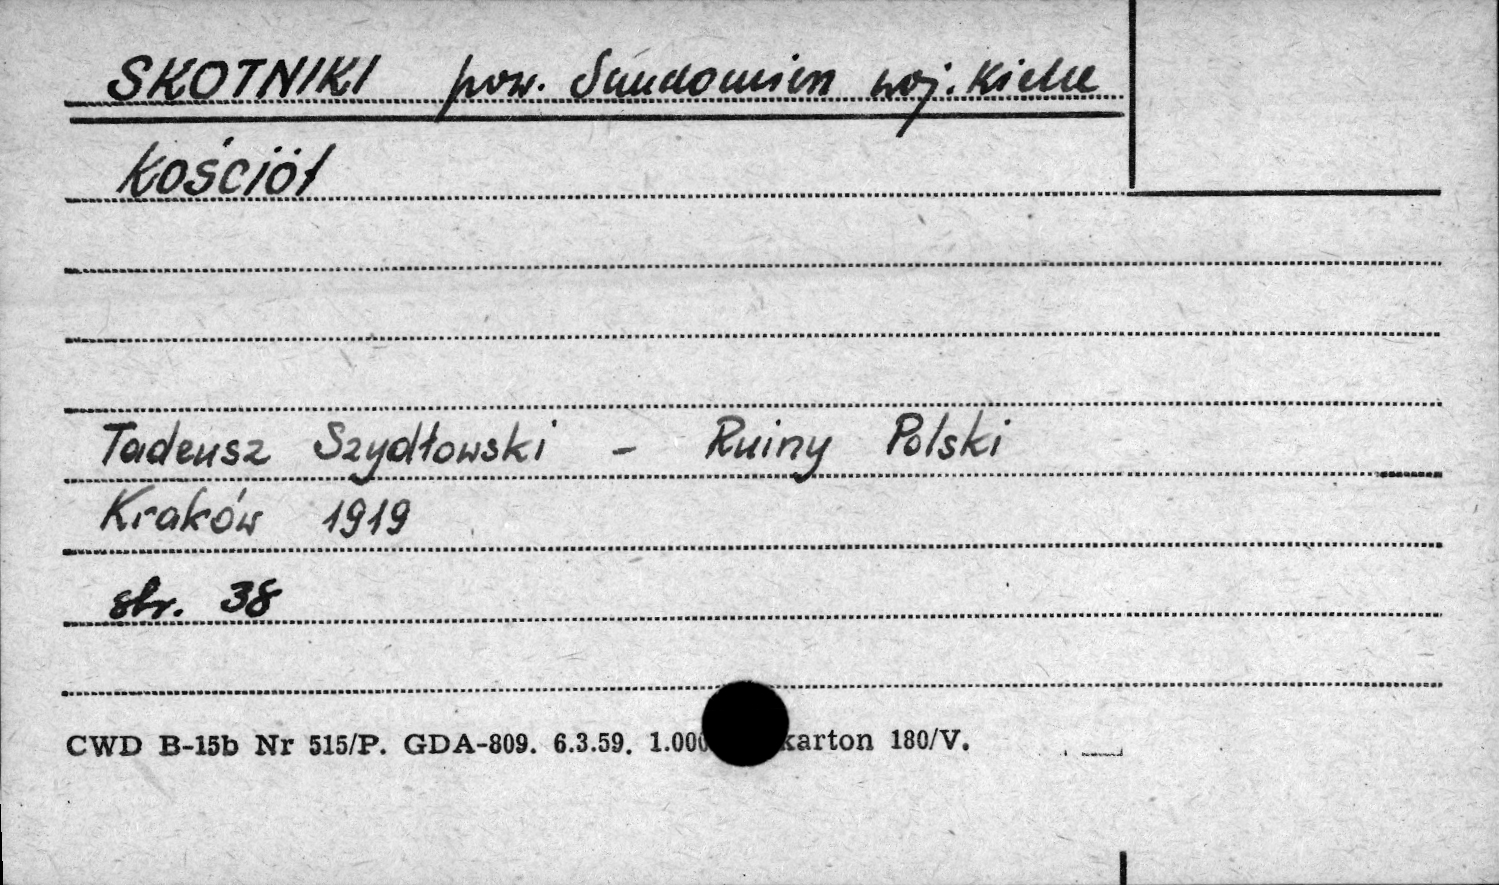 SKOTNIKI pow. Sandomierz woj. Kielce
Kościół
Tadeusz Szydłowski - Ruiny Polski
Kraków 1919
str. 38
CWD B-15b Nr 515/P. GDA-809. 6.3.59. 1.000 karton 180/V.